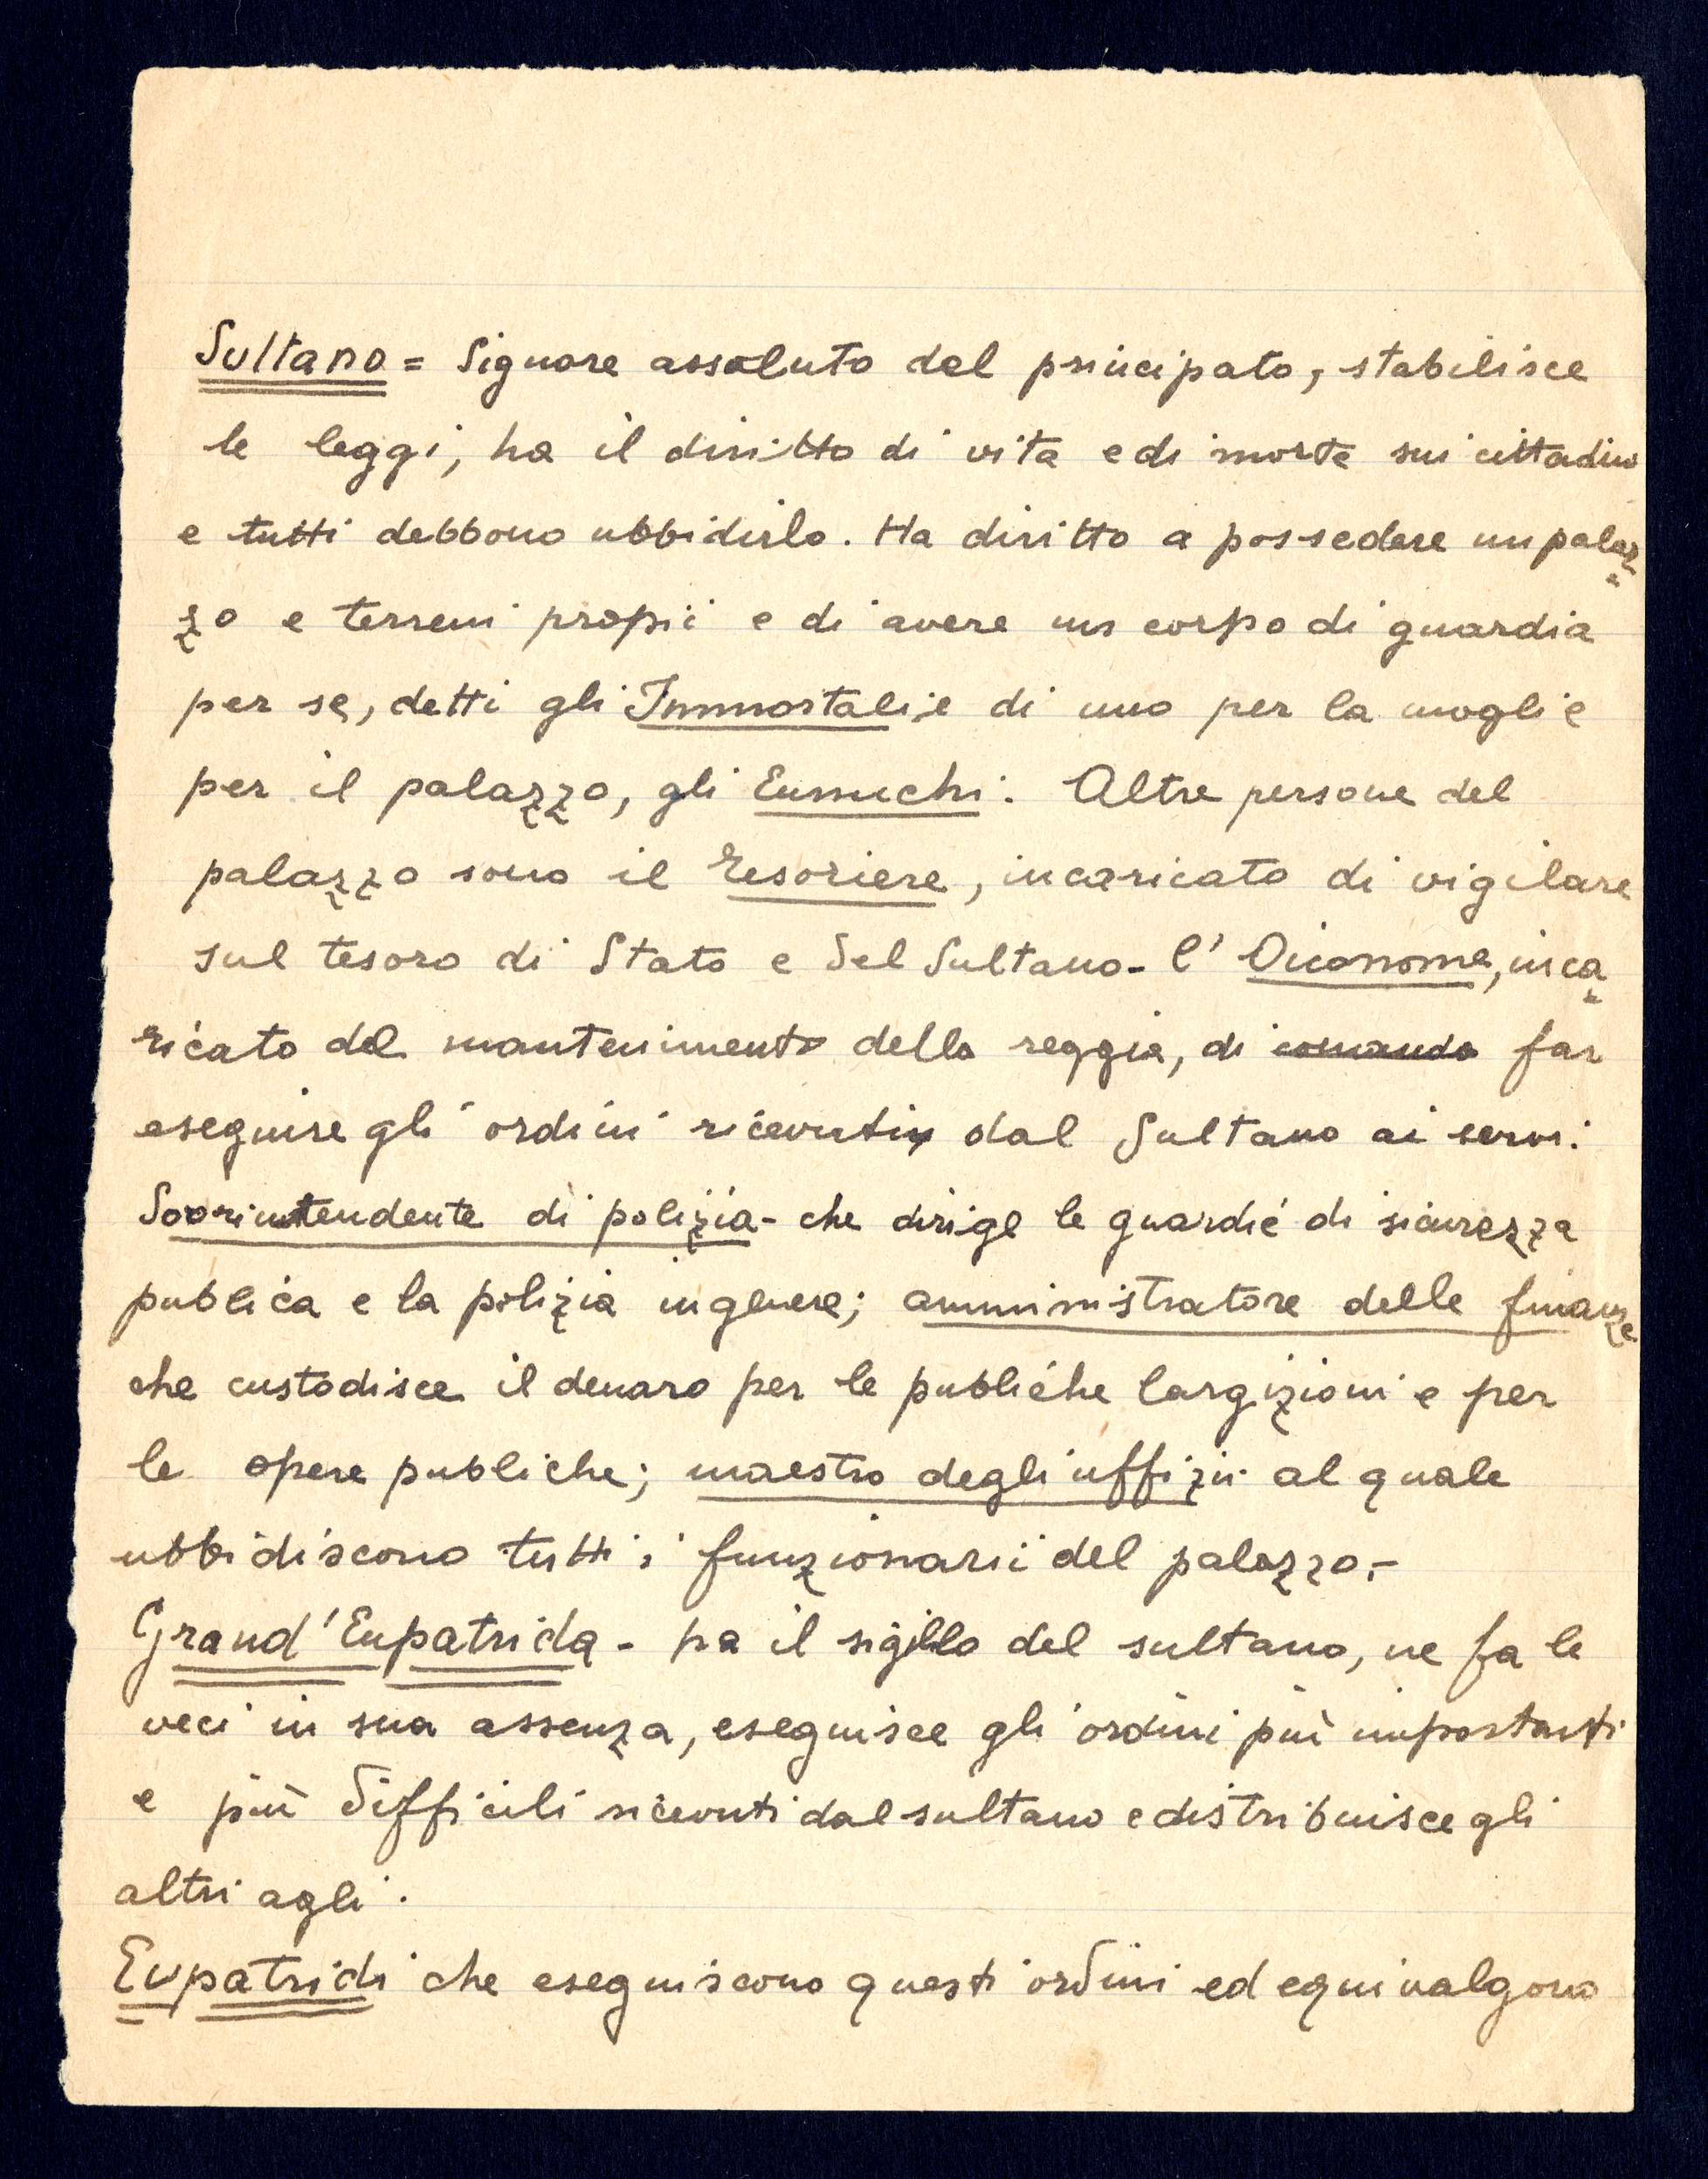 Sultano = Signore assoluto del principato, stabilisce
le leggi, ha il diritto di vita e di morte sui cittadini
e tutti debbono ubbidirlo. Ha diritto a possedere un palaz
zo e terreni propii e di avere un corpo di guardia
per se, detti gli Immortali e di uno per la moglie
per il palazzo, gli Eunuchi. Altre persone del
palazzo sono il tesoriere, incaricato di vigilare
sul tesoro di Stato e del Sultano - l' Oiconome, inca
ricato del mantenimento della reggia, di comando far
eseguire gli ordini ricevuti dal Sultano ai servi.
Sovrintendente di polizia - che dirige le guardie di sicurezza
publica e la polizia in genere; amministratore delle finanze
che custodisce il denaro per le publiche largizioni e per
le opere publiche; maestro degli uffizii al quale
ubbidiscono tutti i funzionarii del palazzo.-
Grand'Eupatrida - ha il sigillo del sultano, ne fa le
veci in sua assenza, eseguisce gli ordini più importanti
e più difficili ricevuti dal sultano e distribuisce gli
altri agli.
Eupatridi che eseguiscono questi ordini ed equivalgono